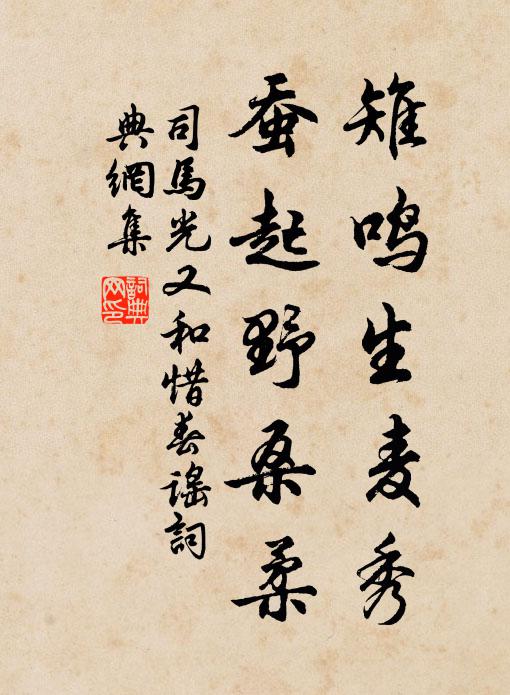 雉鸣生麦秀
蚕起野桑柔
司馬光又和惜春谣詞
典網集
詞典
网印